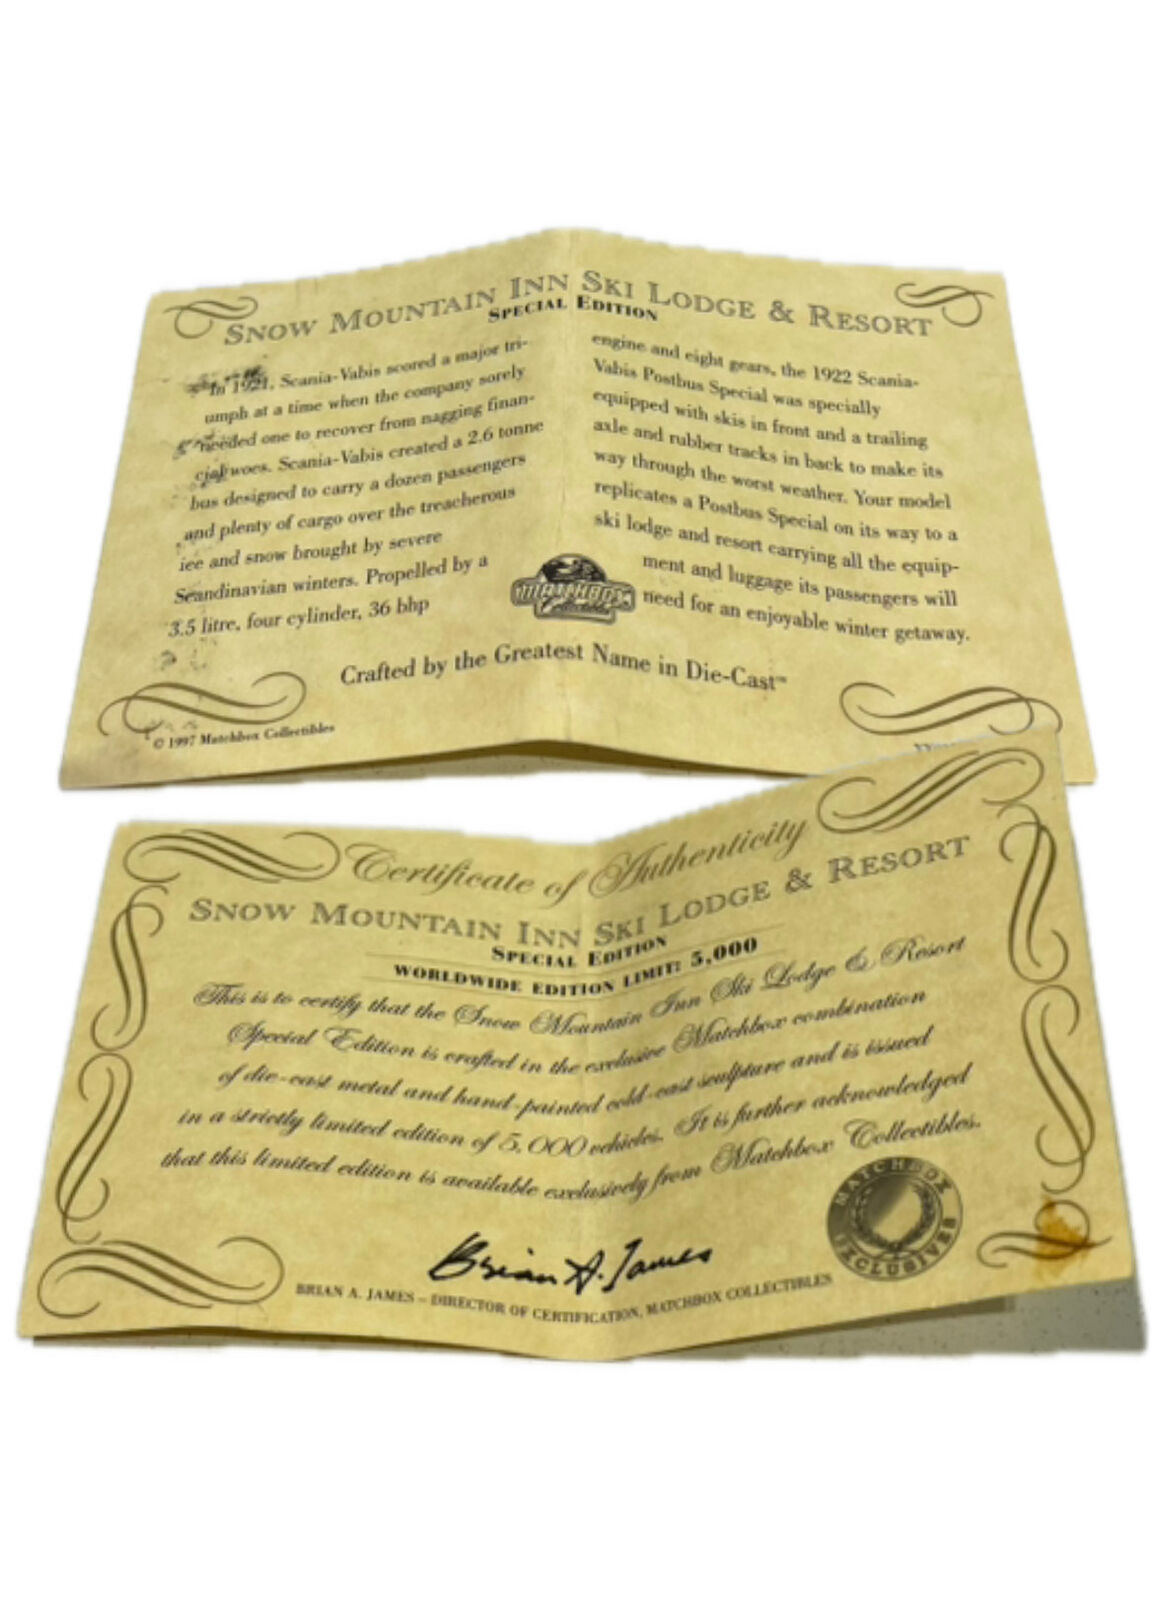 SNOW MOUNTAIN INN SKI LODGE & RESORT
SPECIAL EDITION
In 1921, Scania-Vabis scored a major tri-
umph at a time when the company sorely
needed one to recover from nagging finan-
cial woes. Scania-Vabis created a 2.6 tonne
bus designed to carry a dozen passengers
and plenty of cargo over the treacherous
ice and snow brought by severe
Scandinavian winters. Propelled by a
3.5 litre, four cylinder, 36 bhp
engine and eight gears, the 1922 Scania-
Vabis Postbus Special was specially
equipped with skis in front and a trailing
axle and rubber tracks in back to make its
way through the worst weather. Your model
replicates a Postbus Special on its way to a
ski lodge and resort carrying all the equip-
ment and luggage its passengers will
need for an enjoyable winter getaway.
MATCHBOX
Collectibles
Crafted by the Greatest Name in Die-Cast™
© 1997 Matchbox Collectibles
Certificate of Authenticity
SNOW MOUNTAIN INN SKI LODGE & RESORT
SPECIAL EDITION
WORLDWIDE EDITION LIMIT: 5,000
This is to certify that the Snow Mountain Inn Ski Lodge & Resort
Special Edition is crafted in the exclusive Matchbox combination
of die-cast metal and hand-painted cold-cast sculpture and is issued
in a strictly limited edition of 5,000 vehicles. It is further acknowledged
that this limited edition is available exclusively from Matchbox Collectibles.
Brian A. James
BRIAN A. JAMES – DIRECTOR OF CERTIFICATION, MATCHBOX COLLECTIBLES
MATCHBOX
EXCLUSIVES